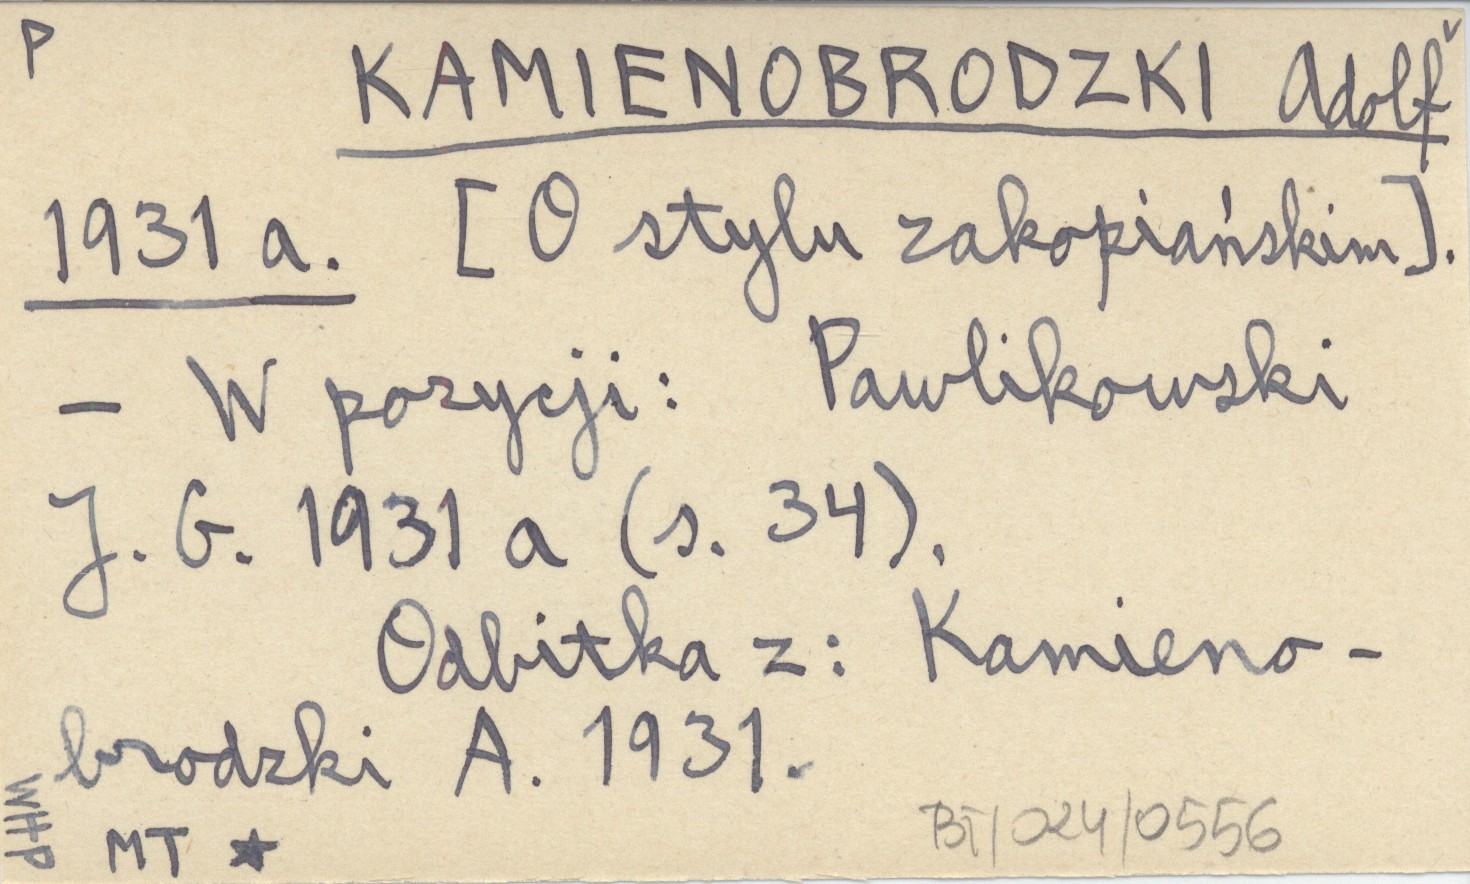 P
KAMIENOBRODZKI Adolf ˇ
1931 a. [O stylu zakopiańskim].
– W pozycji: Pawlikowski
J. G. 1931 a (s. 34).
Odbitka z: Kamieno-
brodzki A. 1931.
WHP
MT ★
BT/024/0556